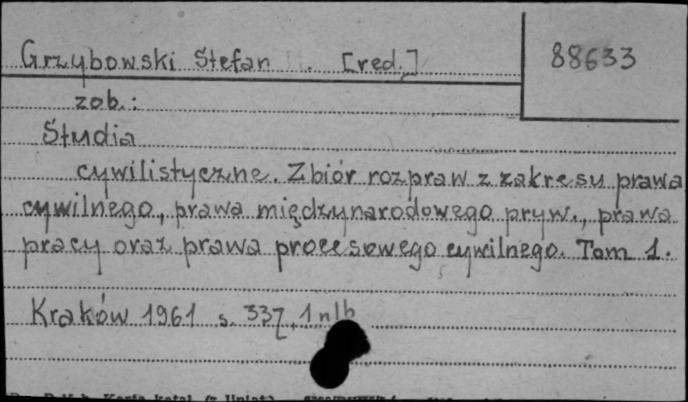 Grzybowski Stefan . [red.]
88633
zob.:
Studia
cywilistyczne. Zbiór rozpraw z zakresu prawa
cywilnego, prawa międzynarodowego pryw., prawa
pracy oraz prawa procesowego cywilnego. Tom 1.
Kraków 1961 s. 337, 1 nlb